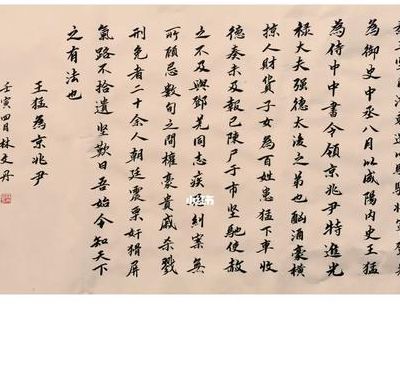 為御史中丞八月以咸陽內史王猛
為侍中中書令領京兆尹特進光
祿大夫强德太後之弟也酗酒豪橫
掠人財貨子女為百姓患猛下車收
德奏未及報已陳尸于市堅馳使赦
之不及與鄧羌同志疾惡糾案無
所顧忌數旬之間權豪貴戚殺戮
刑免者二十余人朝廷震栗奸猾屏
氣路不拾遺坚歎曰吾始今知天下
之有法也
王猛為京兆尹
壬寅四月林文丹
小红书